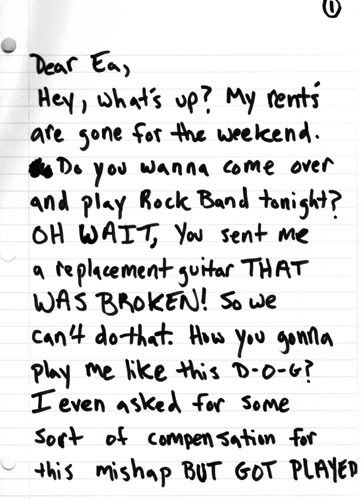 ①
Dear Ea,
Hey, what's up? My rents'
are gone for the weekend.
Do you wanna come over
and play Rock Band tonight?
OH WAIT, You sent me
a replacement guitar THAT
WAS BROKEN! So we
can't do that. How you gonna
play me like this D-O-G?
I even asked for some
sort of compensation for
this mishap BUT GOT PLAYED